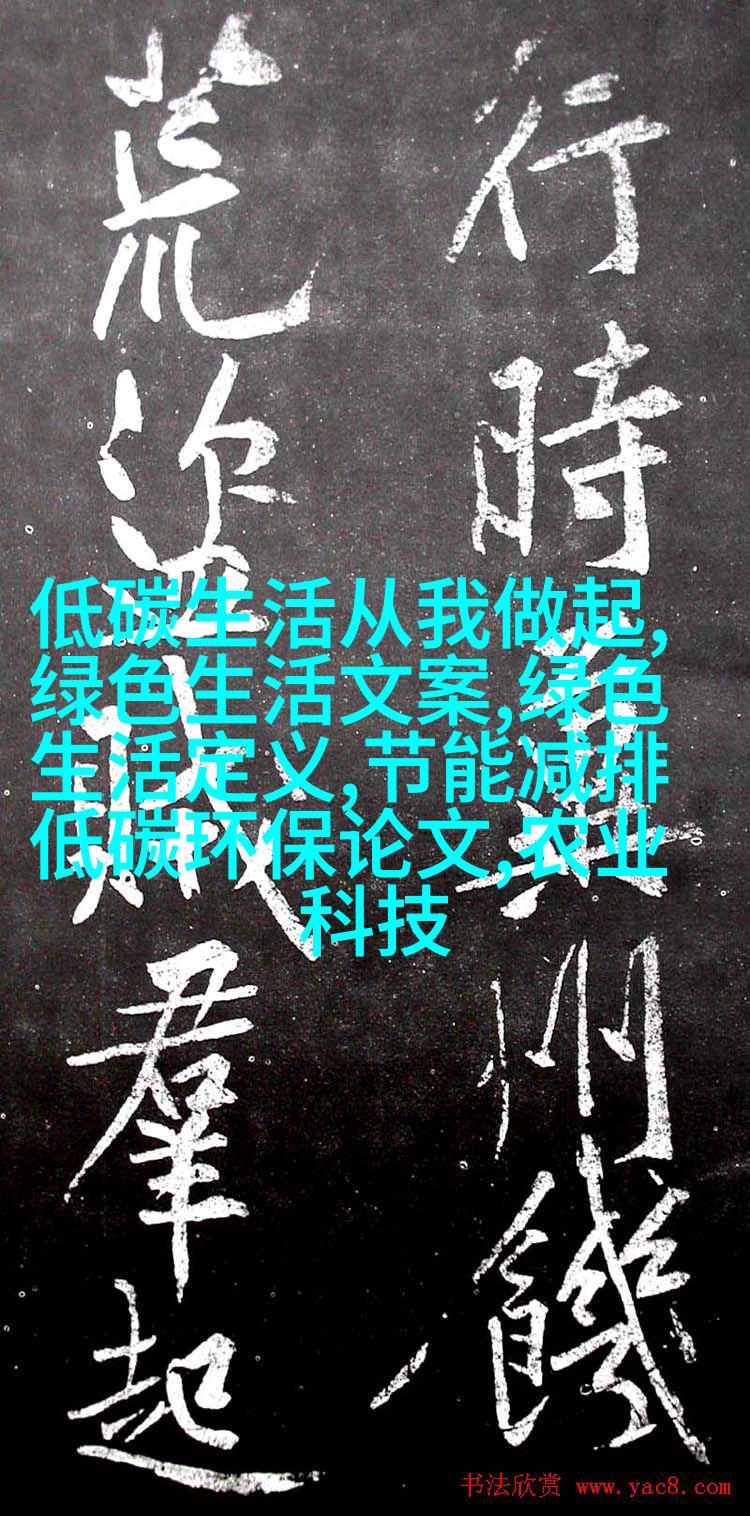 行時州饑
荒盜賊羣起
低碳生活从我做起,
绿色生活文案,绿色
生活定义,节能减排
低碳环保论文,农业
科技
书法欣赏 www.yac8.com